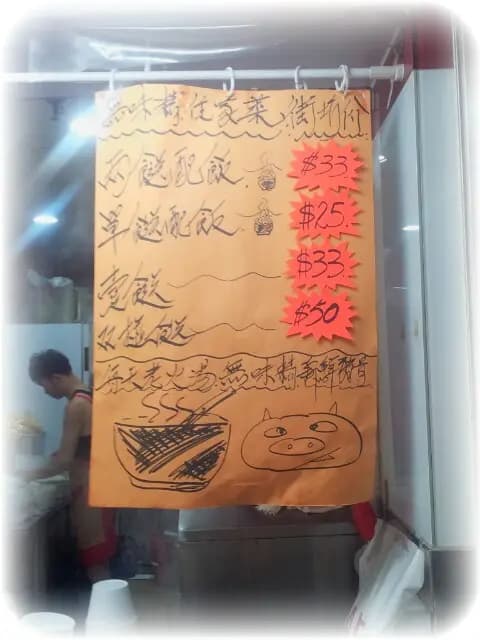 無味精住家菜 街坊价
兩餸配飯 $33
單餸配飯 $25
壹餸 $33
双餸 $50
每天老火湯 無味精 新鮮豬骨